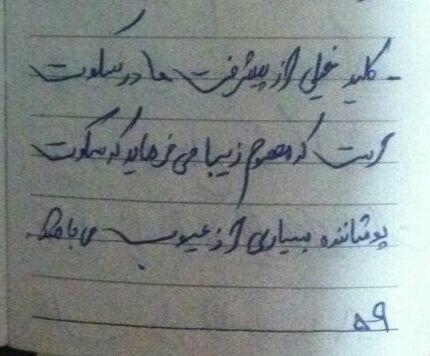 - کلید خیلی از پیشرفت ما در سکوت
است که معصوم زیبا می فرماید که سکوت
پوشاننده بسیاری از عیوب می باشد.
۵۹